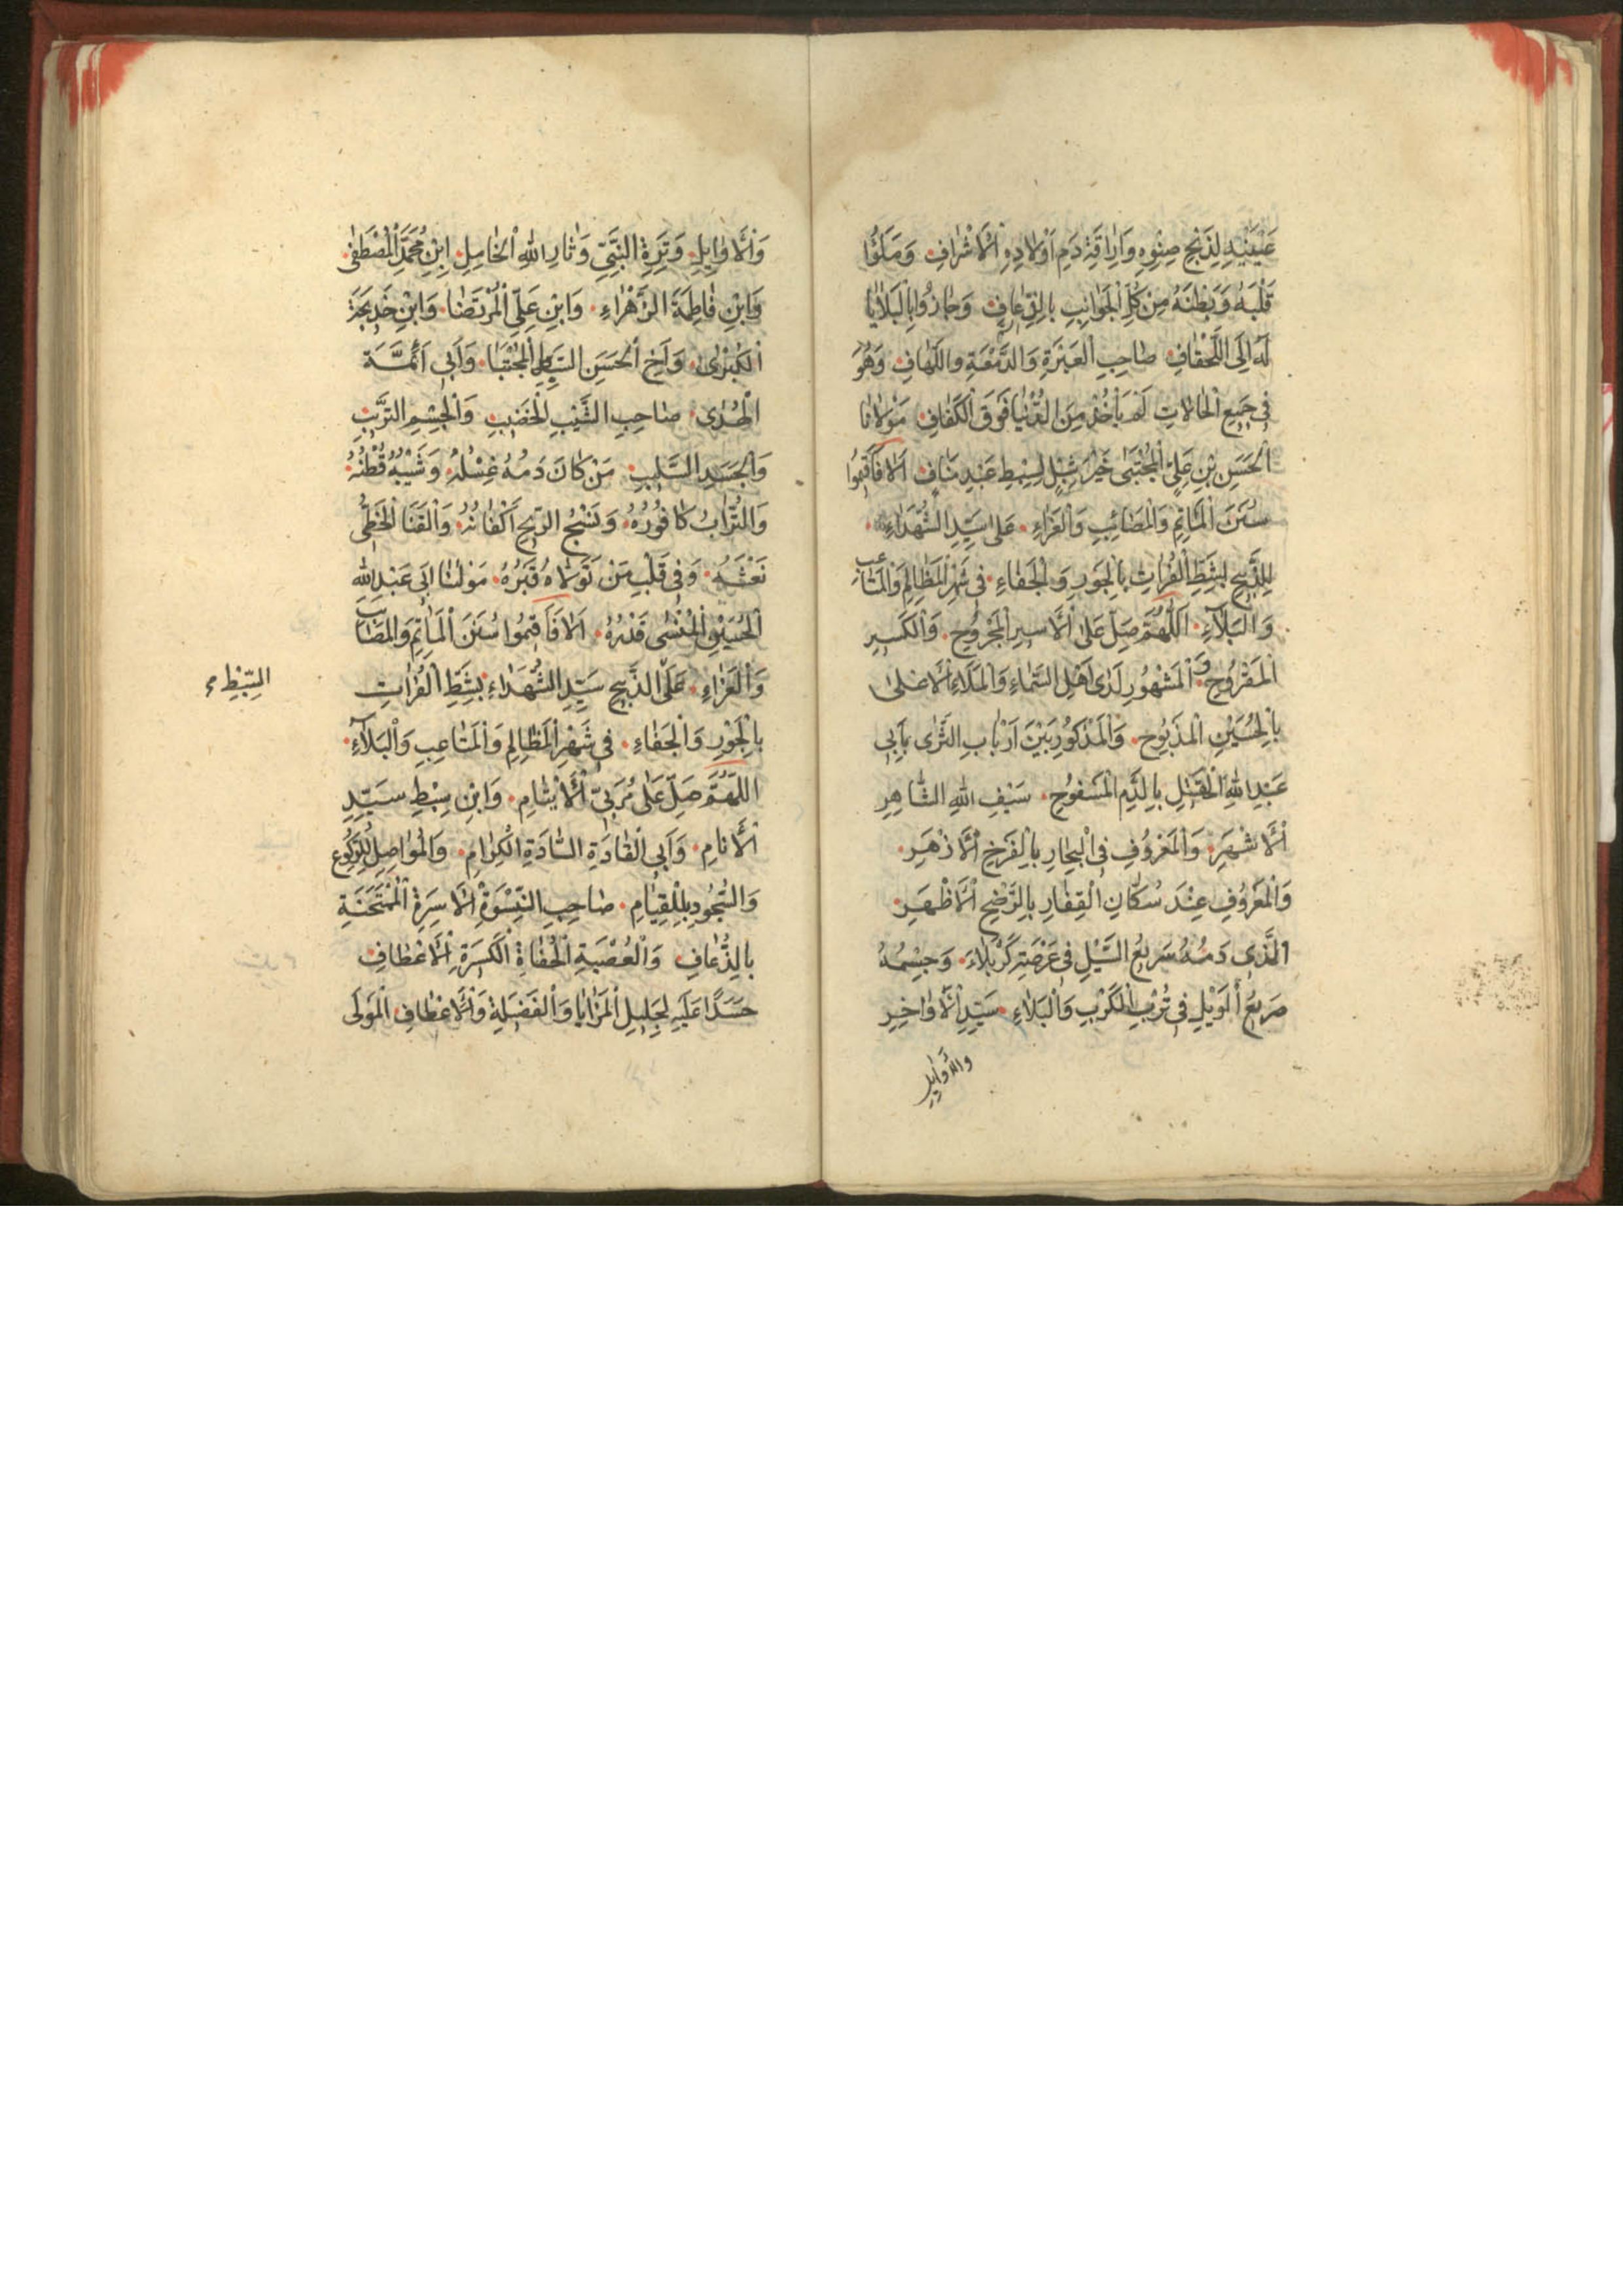 عَيْنَيْهِ لِذَبْحِ صِنْوِهِ وَاِرَاقَةِ دَمِ اَوْلَادِهِ الْاَشْرَافِ وَمَلَئُوا
قَلْبَهُ وَبَطْنَهُ مِنْ كُلِّ الْجَوَانِبِ وَحَازُوا بِالْبَلَايَا
لَهُ اِلَى صَاحِبِ الْعَبْرَةِ وَالدَّمْعَةِ وَاللَّهَافِ وَهُوَ
فِي جَمِيعِ الْحَالَاتِ لَمْ يَأْخُذْ مِنَ الدُّنْيَا فَوْقَ الْكَفَافِ مَوْلَانَا
الْحَسَنِ بْنِ عَلِيٍّ الْمُجْتَبَى خَيْرِ شِبْلٍ لِسِبْطِ عَبْدِ مَنَافٍ اَلَا فَاَقِيمُوا
سُنَنَ الْمَاتِمِ وَالْمَصَائِبِ وَالْعَزَاءِ عَلَى سَيِّدِ الشُّهَدَاءِ
لِلذَّبِيحِ بِشَطِّ الْفُرَاتِ بِالْجَوْرِ وَالْجَفَاءِ فِي شَهْرِ الْمَظَالِمِ وَالْمَتَاعِبِ
وَالْبَلَاءِ اَللَّهُمَّ صَلِّ عَلَى الْاَسِيرِ الْمَجْرُوحِ وَالْكَسِيرِ
الْمَقْرُوحِ وَ الْمَشْهُورِ لَدَى اَهْلِ السَّمَاءِ وَالْمَلَاءِ الْاَعْلَى
بِالْحُسَيْنِ الْمَذْبُوحِ وَالْمَذْكُورِ بَيْنَ اَرْبَابِ الثَّرَى بِاَبِي
عَبْدِ اللهِ الْقَتِيلِ بِالدَّمِ الْمَسْفُوحِ سَيْفِ اللهِ الشَّاهِرِ
الْاَشْهَرِ وَالْمَعْرُوفِ فِي الْبِحَارِ بِالْفَرْخِ الْاَزْهَرِ
وَالْمَعْرُوفِ عِنْدَ سُكَّانِ الْقِفَارِ الْاَظْهَرِ
الَّذِي دَمُهُ سَرِيعُ السَّيْلِ فِي عَرْصَةِ كَرْبَلَاءَ وَجِسْمُهُ
صَرِيعُ الْوَيْلِ فِي تُرْبِ الْكَرْبِ وَالْبَلَاءِ سَيِّدِ الْاَوَاخِرِ
والاَوَايِلِ
وَالْاَوَايِلِ وَتِرَةِ النَّبِيِّ وَثَارِ اللهِ ابْنِ مُحَمَّدٍ الْمُصْطَفَى
وَابْنِ فَاطِمَةَ الزَّهْرَاءِ وَابْنِ عَلِيٍّ الْمُرْتَضَا وَابْنِ خَدِيجَةَ
الْكُبْرَى وَاَخِ الْحَسَنِ السِّبْطِ الْمُجْتَبَا وَاَبِي اَئِمَّةِ
الْهُدَى صَاحِبِ الشَّيْبِ الْخَضِيبِ وَالْجِسْمِ التَّرِيبِ
وَالْجَسَدِ السَّلِيبِ مَنْ كَانَ دَمُهُ غِسْلَهُ وَشَيْبُهُ قُطْنُهُ
وَالتُّرَابُ كَافُورُهُ وَنَسْجُ الرِّيحِ اَكْفَانُهُ وَالْقَنَا الْخَطِّيُّ
نَعْشُهُ وَفِي قَلْبِ مَنْ تَوَلَاهُ قَبْرُهُ مَوْلٰنَا اَبِي عَبْدِ اللهِ
الْحُسَيْنِ قَدْرُهُ اَلَا فَاَقِيمُوا سُنَنَ الْمَاتِمِ وَالْمَصَائِبِ
وَالْعَزَاءِ عَلَى الذَّبِيحِ سَيِّدِ الشُّهَدَاءِ بِشَطِّ الْفُرَاتِ
السِّبْطِ
بِالْجَوْرِ وَالْجَفَاءِ فِي شَهْرِ الْمَظَالِمِ وَالْمَتَاعِبِ وَالْبَلَاءِ
اَللَّهُمَّ صَلِّ عَلَى مُرَبِّي الْاَيْتَامِ وَابْنِ سِبْطِ سَيِّدِ
الْاَنَامِ وَاَبِي الْقَادَةِ السَّادَةِ الْكِرَامِ وَالْمُوَاصِلِ لِلرُّكُوعِ
وَالسُّجُودِ لِلْقِيَامِ صَاحِبِ النِّسْوَةِ الْاَسِرَةِ الْمُمْتَحَنَةِ
بِالذُّعَافِ وَالْعُصْبَةِ الْكَسِرَةِ
حَسَدًا عَلَيْهِ لِجَلِيلِ الْمَزَايَا وَالْفَضِيلَةِ الْمَوْلَى